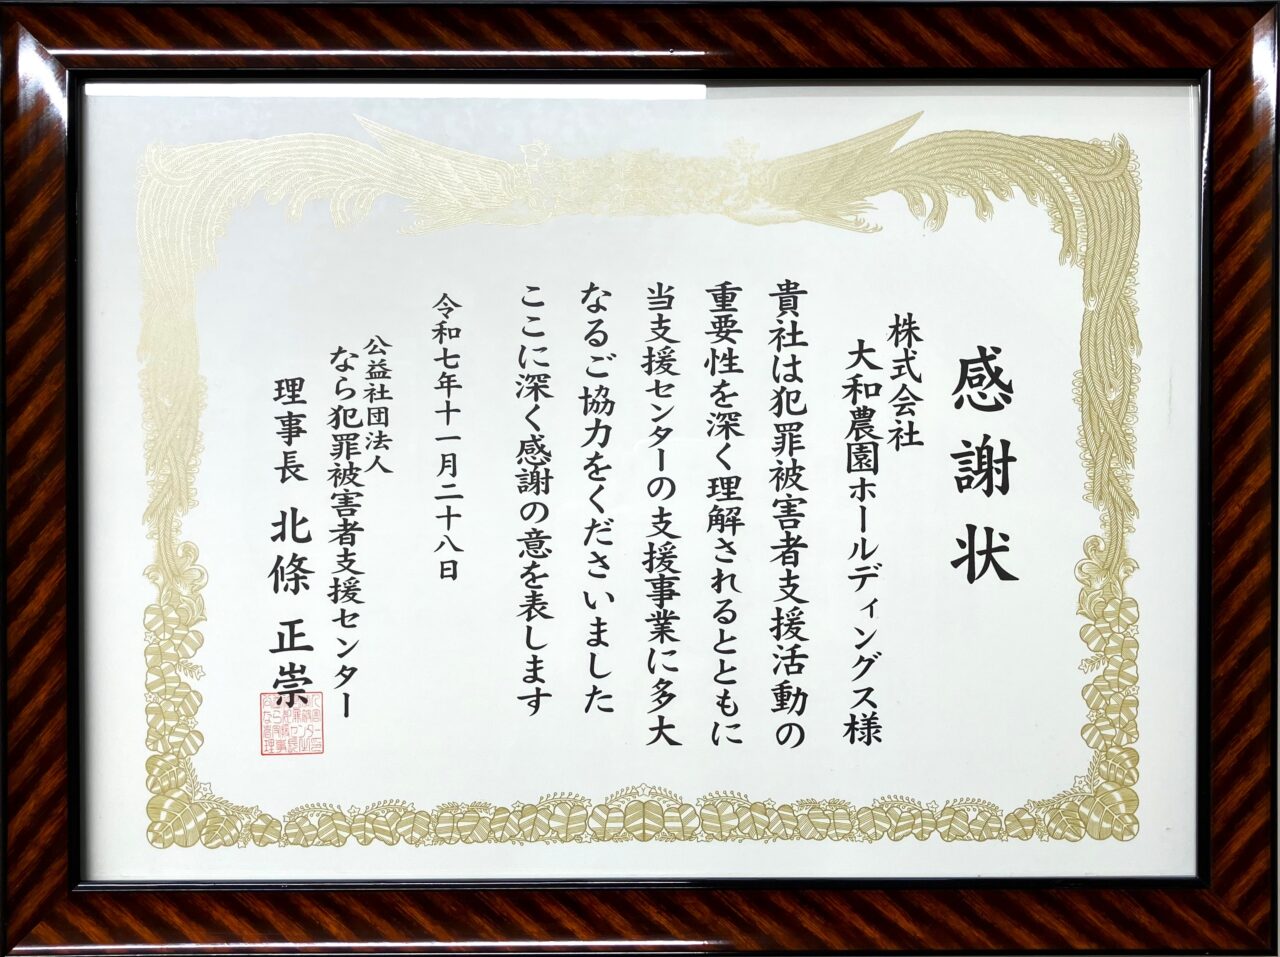 感謝状
株式会社
大和農園ホールディングス様
貴社は犯罪被害者支援活動の
重要性を深く理解されるとともに
当支援センターの支援事業に多大
なるご協力をくださいました
ここに深く感謝の意を表します
令和七年十一月二十八日
公益社団法人
なら犯罪被害者支援センター
理事長 北條 正崇